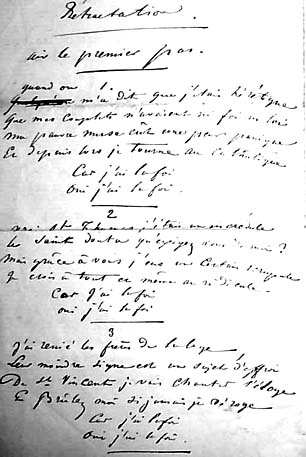 Rétractation.
air le premier pas.
quand on
m'a dit que j'étais hérétique
que mes couplets n'avaient ni foi ni loi
ma pauvre muse eut une peur panique
Et depuis lors je tourne au catholique
Car j'ai la foi
Oui j'ai la foi.
2
St Thomas j'étais un incrédule
le Saint douta qu'exigez vous de moi ?
Mais grâce à vous j'eus un certain scrupule
Je crois à tout et même au ridicule.
Car j'ai la foi
oui j'ai la foi
3
J'ai renié les frères de la loge
Leur moindre signe est un sujet d'effroi
De St Vincent je vais chanter l'éloge
Et Brûlez moi si jamais je déroge
Car j'ai la foi
Oui j'ai la foi.